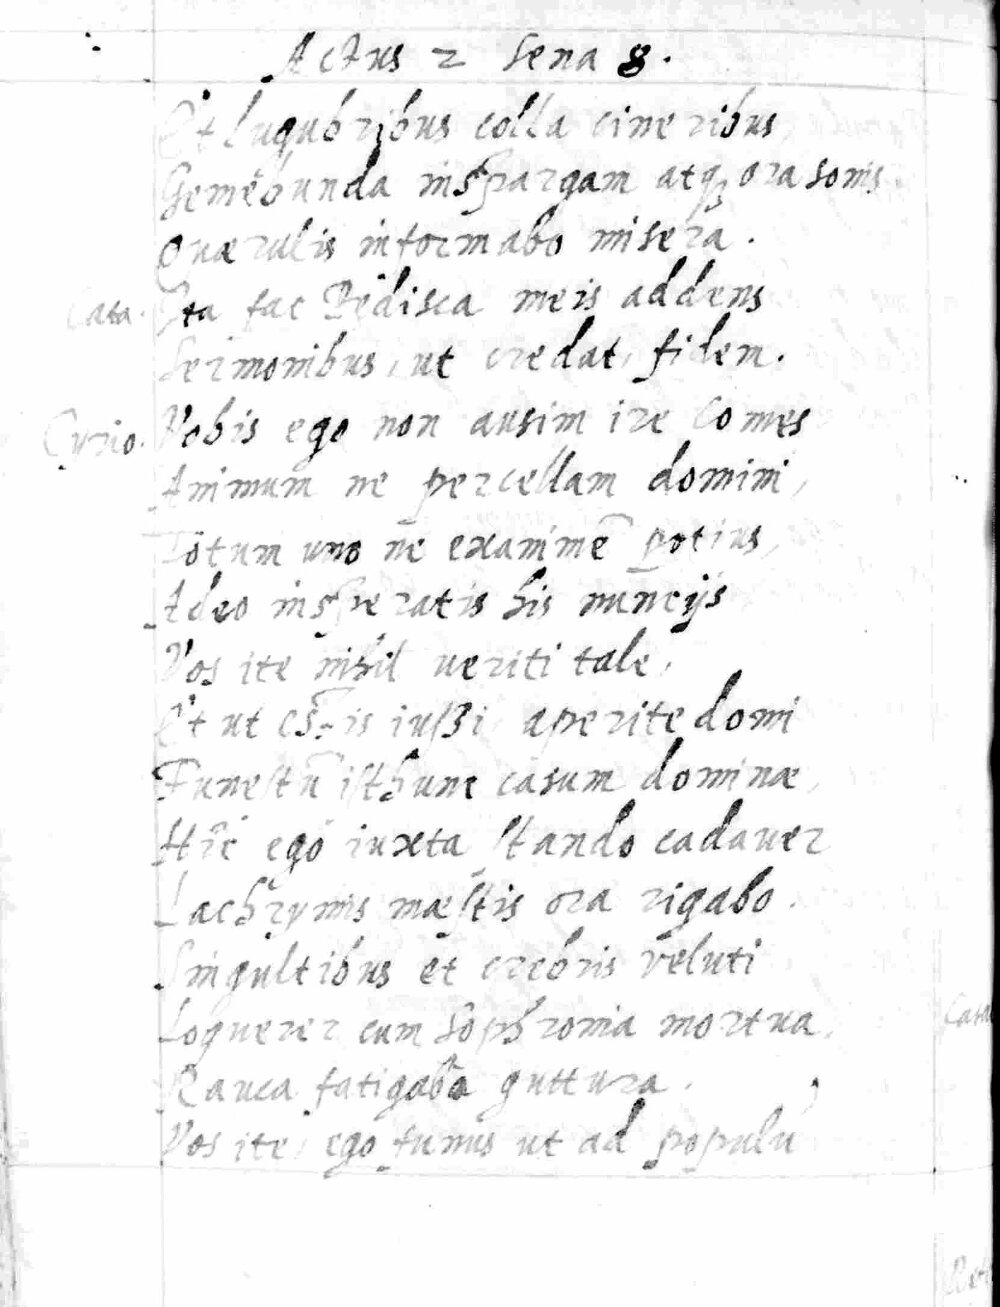 Actus 2 Sena 8.
Et lugubribus colla cineribus
Gemēbunda inspargam atqȝ ora sonis
Quærulis informabo misera.
Cata. Ita fac Pedisca meis addens
Sermonibus, ut credat, fidem.
Cyrio. Vobis ego non ausim ire Comes
Animum ne percellam domini,
Totum uno ne exanimē potius,
Adeo insperatis his nuncijs
Vos ite nihil veriti tale,
Et ut iussi aperite domi
Funestū isthunc casum dominæ,
Hîc ego iuxta stando cadauer
Lachrymis mæstis ora rigabo.
Singultibus et crebris veluti
Loquerer cum Sophronia mortua,
Rauca fatigabo guttura.
Vos ite, ego funus ut ad populū
Cata